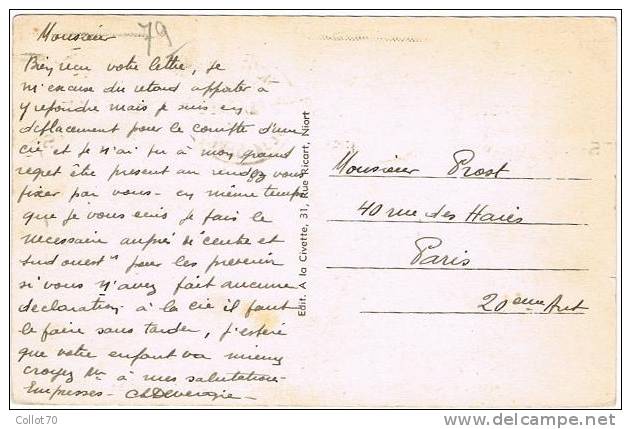 Monsieur
79
Bien reçu votre lettre, je
m'excuse du retard apporter à
y repondre mais je suis en
deplacement pour le compte d'une
cie et je n'ai pu à mon grand
regret être present au rendez vous
fixer par vous - en même temps
que je vous ecris je fais le
necessaire auprès de "centre et
sud ouest" pour les prevenir
si vous n'avez fait aucune
declaration à la cie il faut
le faire sans tarder, j'espère
que votre enfant va mieux
croyez Mr à mes salutations
Empresses -
Edit. A la Civette, 31, Rue Ricart, Niort
Monsieur Prost
40 rue des Haies
Paris
20 eme Arrt
Collot70
www.delcampe.net